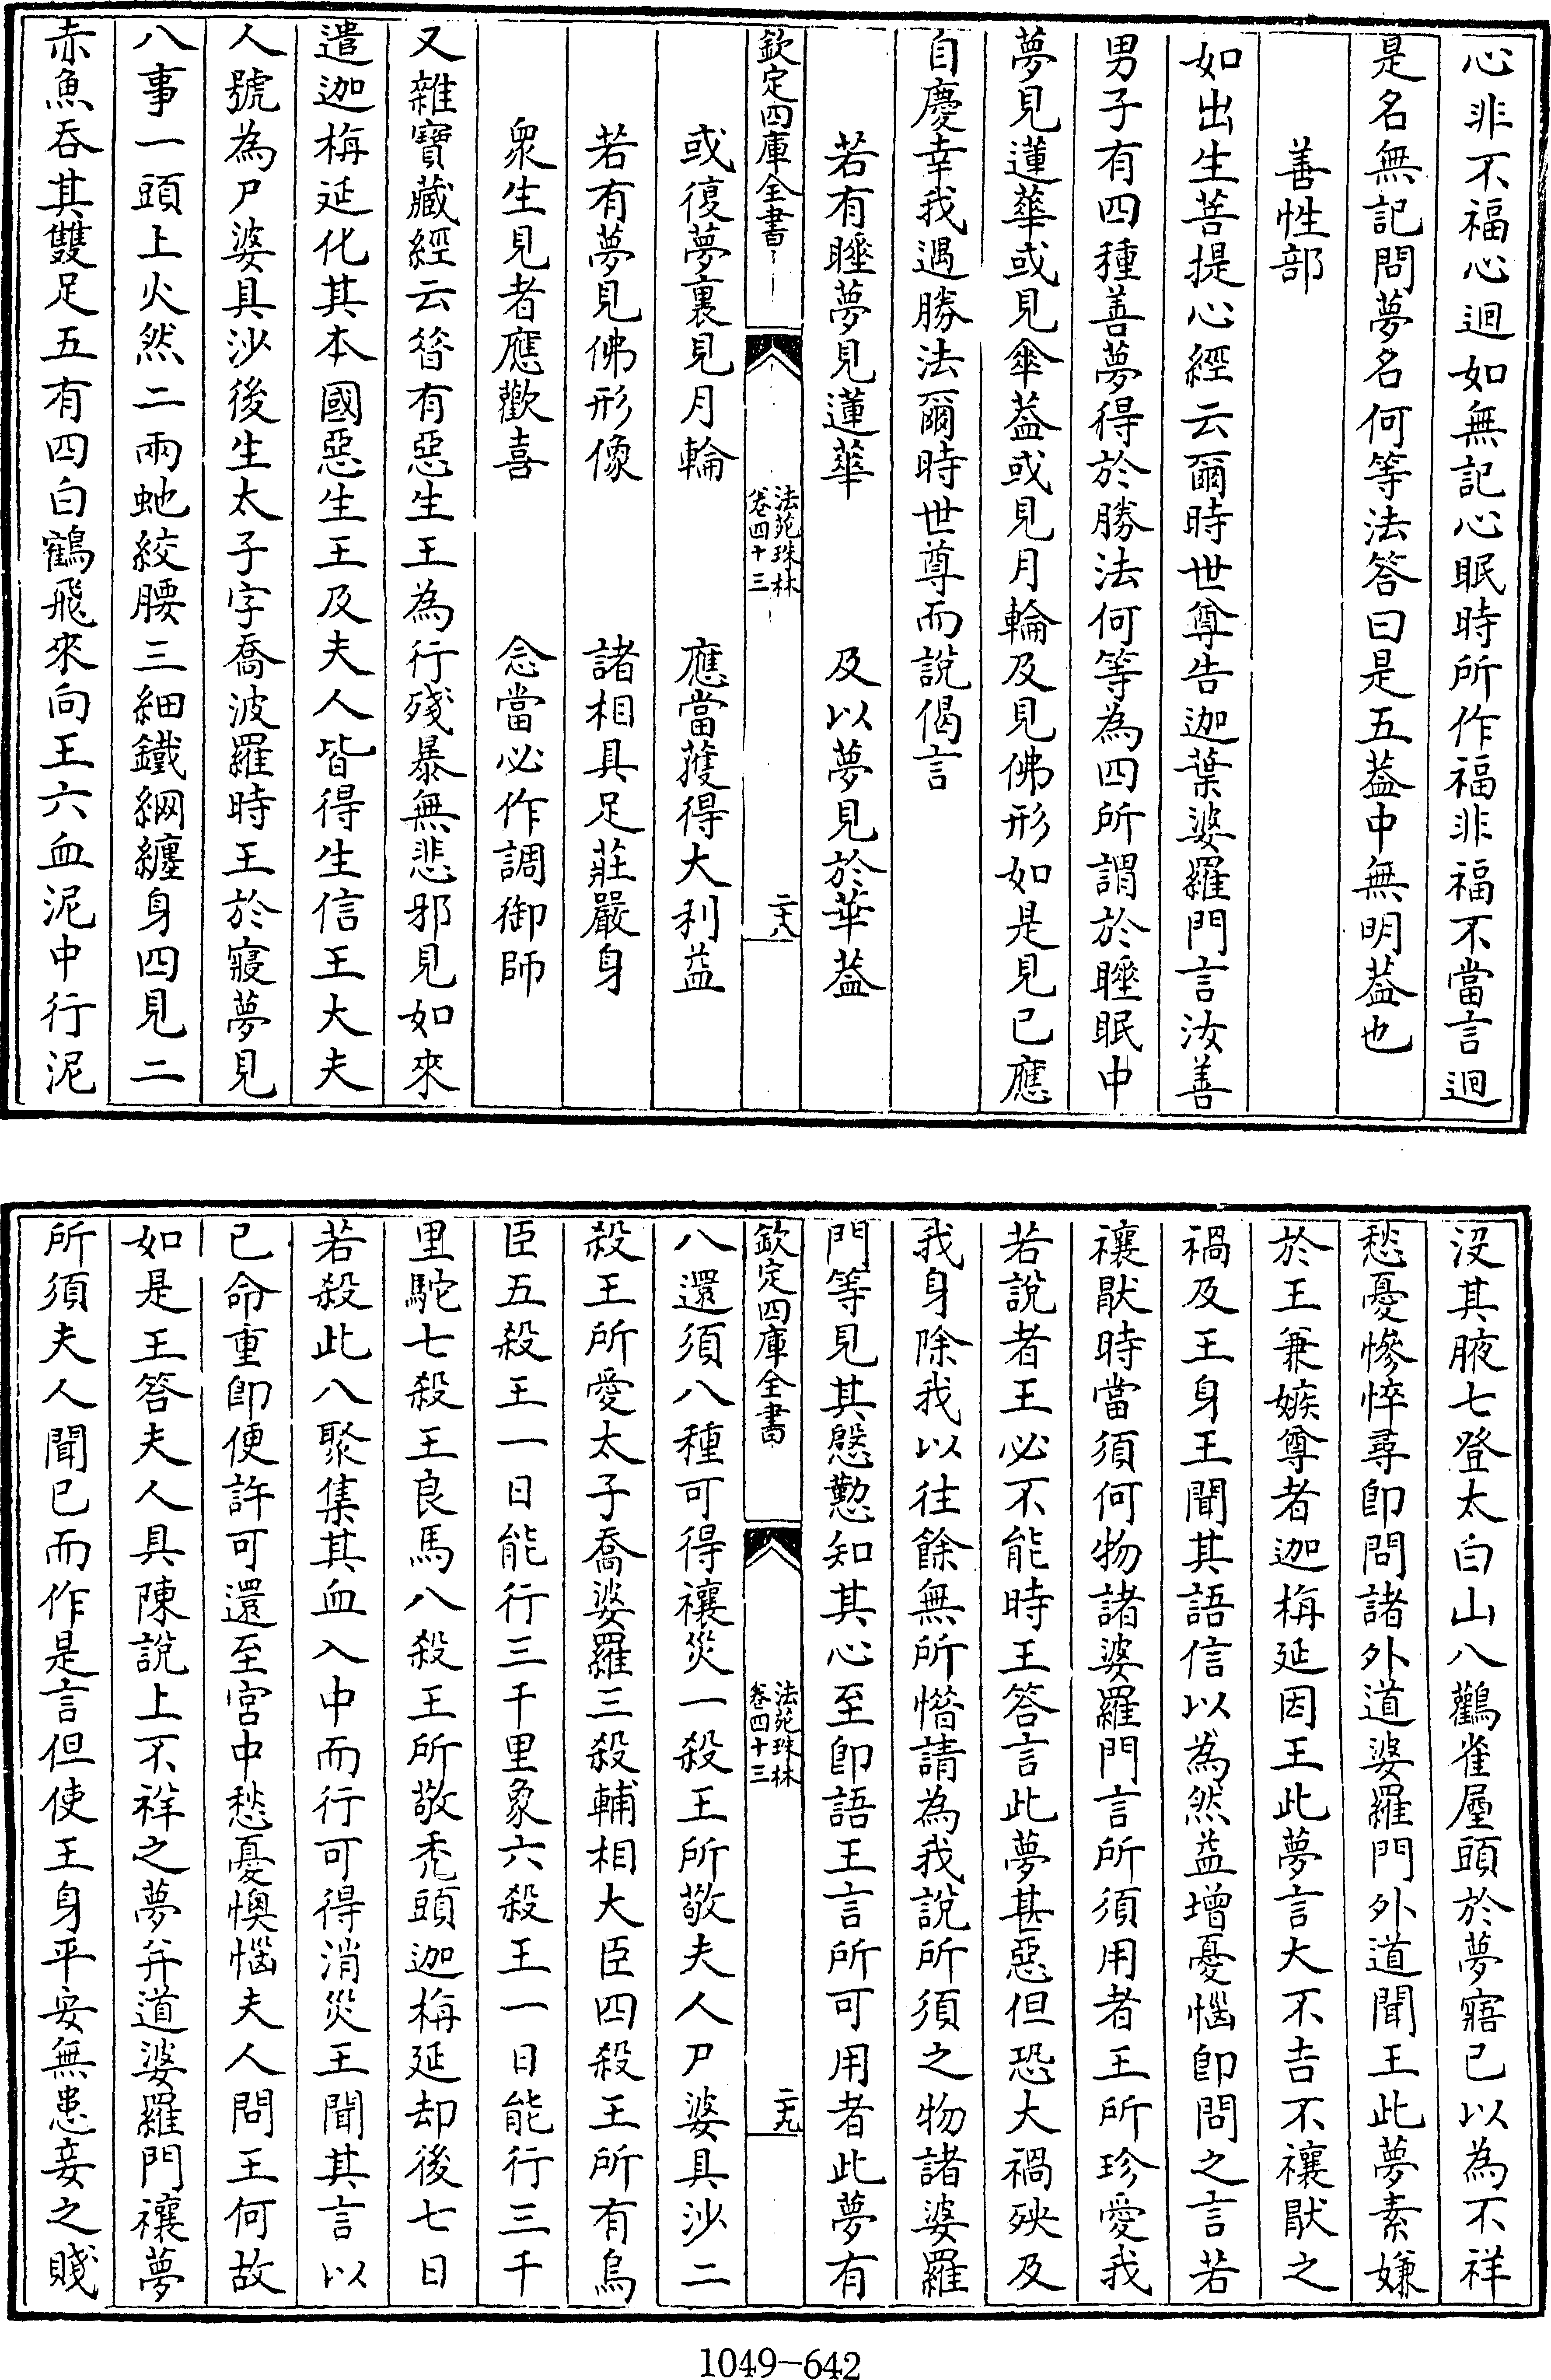 心非不福心迴如無記心眠時所作福非福不當言迴
是名無記問夢名何等法答曰是五蓋中無明蓋也
善性部
如出生菩提心經云爾時世尊告迦葉婆羅門言汝善
男子有四種善夢得於勝法何等為四所謂於睡眠中
夢見蓮華或見傘蓋或見月輪及見佛形如是見已應
自慶幸我遇勝法爾時世尊而說偈言
若有睡夢見蓮華 及以夢見於華蓋
欽定四庫全書 法苑珠林 卷四十三 二十八
或復夢裏見月輪 應當獲得大利益
若有夢見佛形像 諸相具足莊嚴身
衆生見者應歡喜 念當必作調御師
又雜寶藏經云昝有惡生王為行殘暴無悲邪見如來
遣迦栴延化其本國惡生王及夫人皆得生信王大夫
人號為尸婆具沙後生太子字喬波羅時王於寢夢見
八事一頭上火然二兩虵絞腰三細鐵網纏身四見二
赤魚吞其雙足五有四白鶴飛來向王六血泥中行泥
沒其腋七登太白山八鸛雀屋頭於夢寤已以為不祥
愁憂慘悴尋即問諸外道婆羅門外道聞王此夢素嫌
於王兼嫉尊者迦栴延因王此夢言大不吉不禳猒之
禍及王身王聞其語信以為然益增憂惱即問之言若
禳猒時當須何物諸婆羅門言所須用者王所珍愛我
若說者王必不能時王答言此夢甚惡但恐大禍殃及
我身除我以往餘無所惜請為我說所須之物諸婆羅
門等見其慇懃知其心至即語王言所可用者此夢有
欽定四庫全書 法苑珠林 卷四十三 二十九
八還須八種可得禳災一殺王所敬夫人尸婆具沙二
殺王所愛太子喬婆羅三殺輔相大臣四殺王所有烏
臣五殺王一日能行三千里象六殺王一日能行三千
里駝七殺王良馬八殺王所敬禿頭迦栴延却後七日
若殺此八聚集其血入中而行可得消災王聞其言以
已命重即便許可還至宮中愁憂懊惱夫人問王何故
如是王答夫人具陳說上不祥之夢并道婆羅門禳夢
所須夫人聞已而作是言但使王身平安無患妾之賤
1049-642